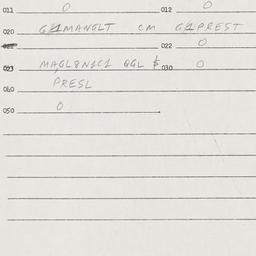 011 0 012 0
020 G1MANGLT CM G1PREST
022 0
023 MAGL8N1C1 QGL $ 030 0
040 PRESL
050 0